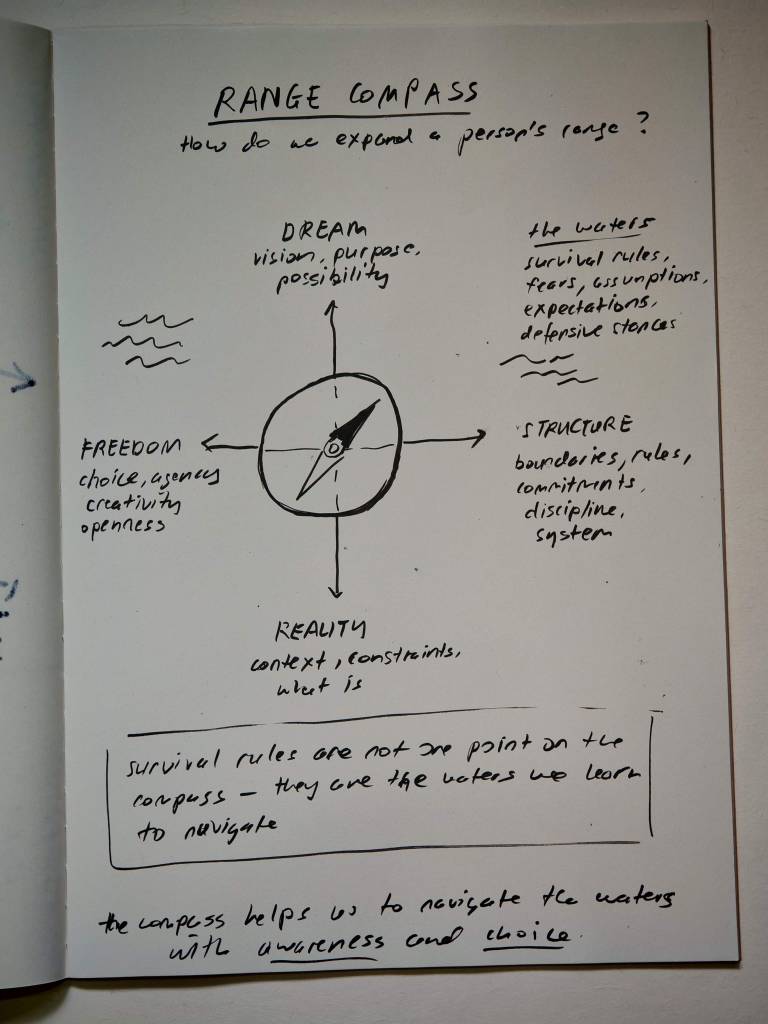 RANGE COMPASS
How do we expand a person's range?
DREAM
vision, purpose,
possibility
the waters
survival rules,
fears, assumptions,
expectations,
defensive stances
FREEDOM
choice, agency
creativity
openness
STRUCTURE
boundaries, rules,
commitments,
discipline,
system
REALITY
context, constraints,
what is
survival rules are not one point on the
compass – they are the waters we learn
to navigate
the compass helps us to navigate the waters
with awareness and choice.